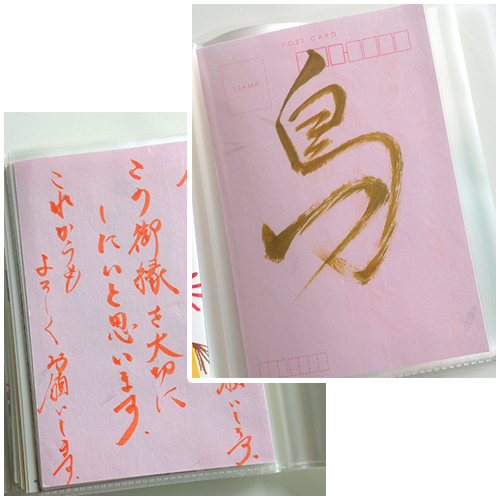 POST CARD
STAMP
鳥
この御縁を大切に
したいと思います。
これからも
よろしくお願いします。
願いします。